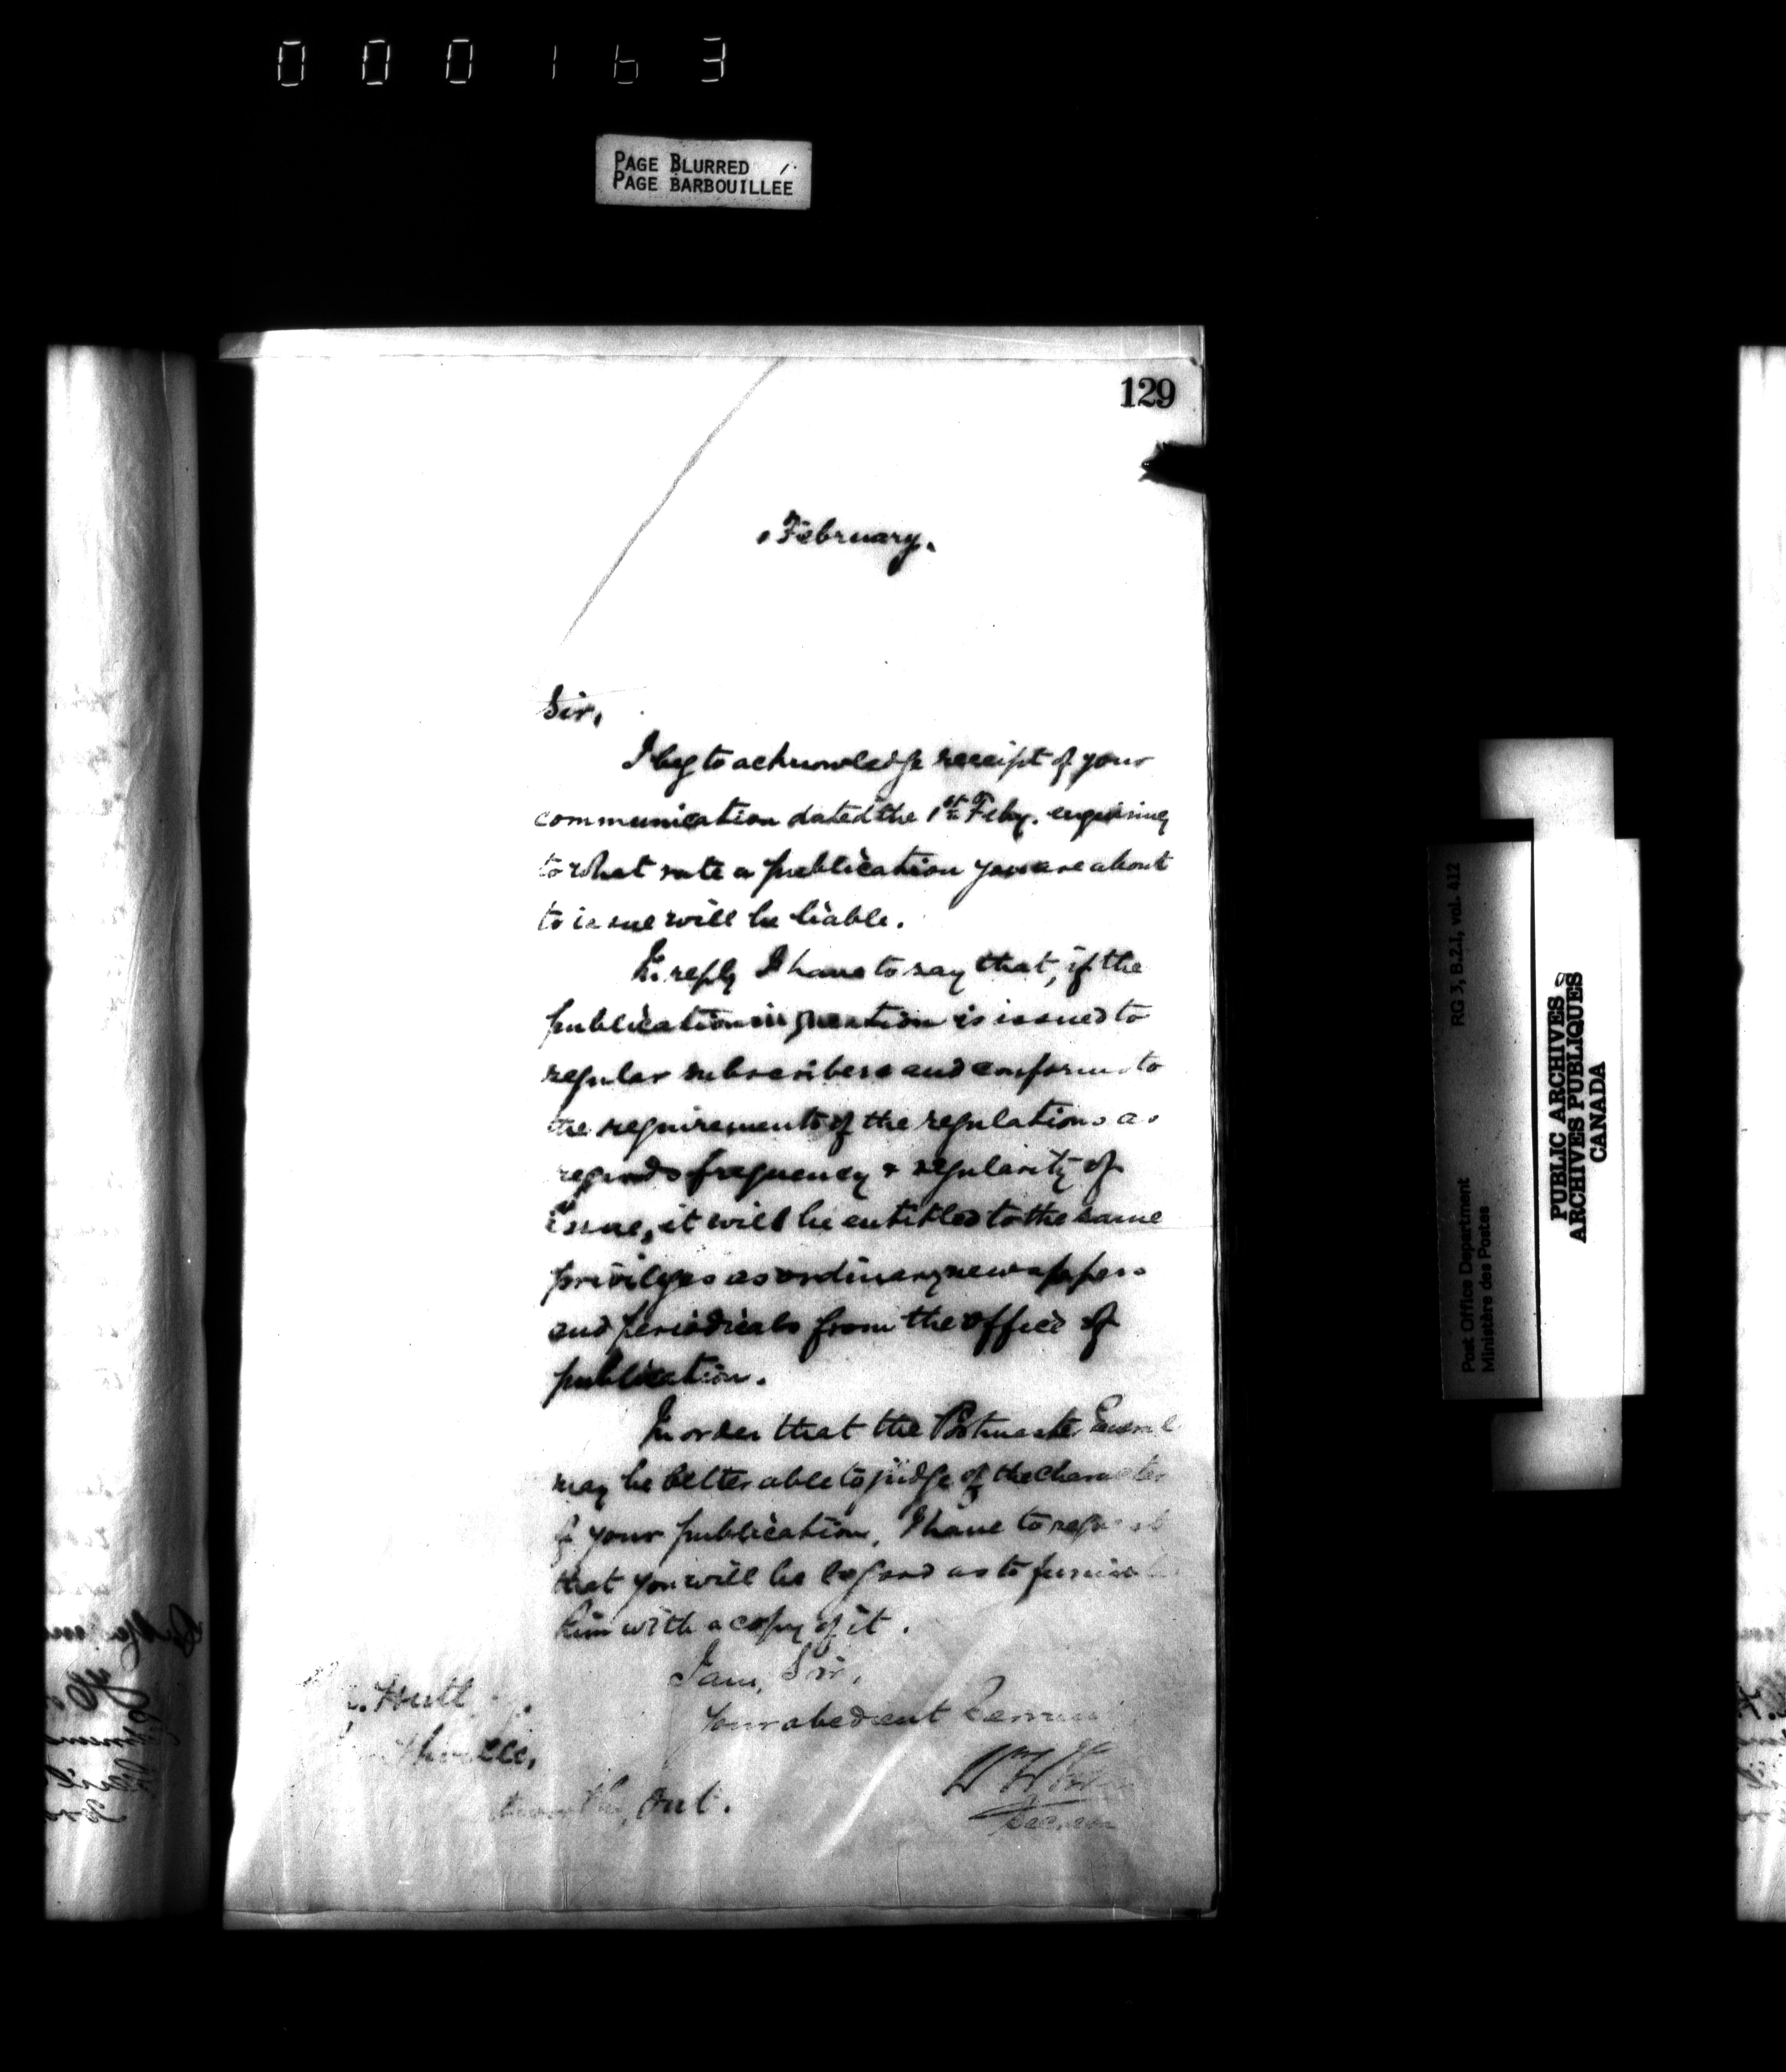 000163
PAGE BLURRED
PAGE BARBOUILLÉE
129
February.
Sir,
I beg to acknowledge receipt of your
communication dated the 1st Feby. enquiring
to what rate a publication you are about
to issue will be liable.
In reply I have to say that, if the
publication in question is issued to
regular subscribers and conforms to
the requirements of the regulations as
regards frequency & regularity of
issue, it will be entitled to the same
privileges as ordinary newspapers
and periodicals from the office of
publication.
In order that the Postmaster General
may be better able to judge of the character
of your publication, I have to request
that you will be so good as to furnish
him with a copy of it.
I am, Sir,
Your obedient Servant
Hutt
Ont.
RG 3, B.2.1, vol. 412
Post Office Department
Ministère des Postes
PUBLIC ARCHIVES
ARCHIVES PUBLIQUES
CANADA